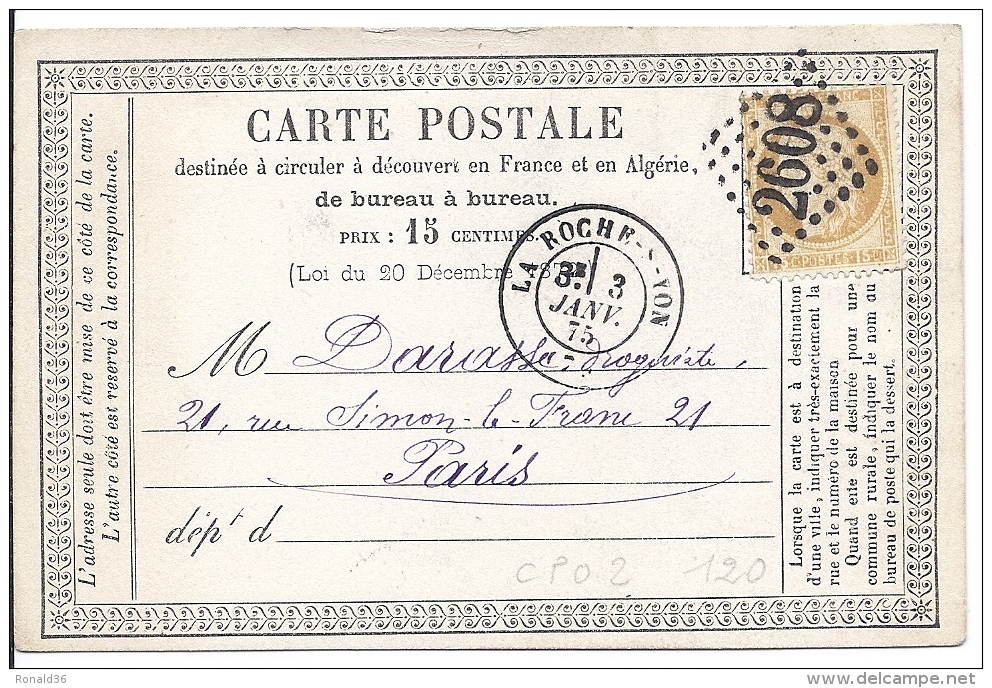 CARTE POSTALE
destinée à circuler à découvert en France et en Algérie,
de bureau à bureau.
PRIX : 15 CENTIMES.
(Loi du 20 Décembre 187
LA ROCHE-S-YON
3E 3
JANV.
75
2608
POSTES 15
M Darasse, Droguiste
21, rue Simon-le-Franc 21
Paris
dépt d
L'adresse seule doit être mise de ce côté de la carte.
L'autre côté est reservé à la correspondance.
Lorsque la carte est à destination
d'une ville, indiquer très-exactement la
rue et le numéro de la maison
Quand elle est destinée pour une
commune rurale, indiquer le nom du
bureau de poste qui la dessert.
CPO 2 120
Ronald36
delcampe.net